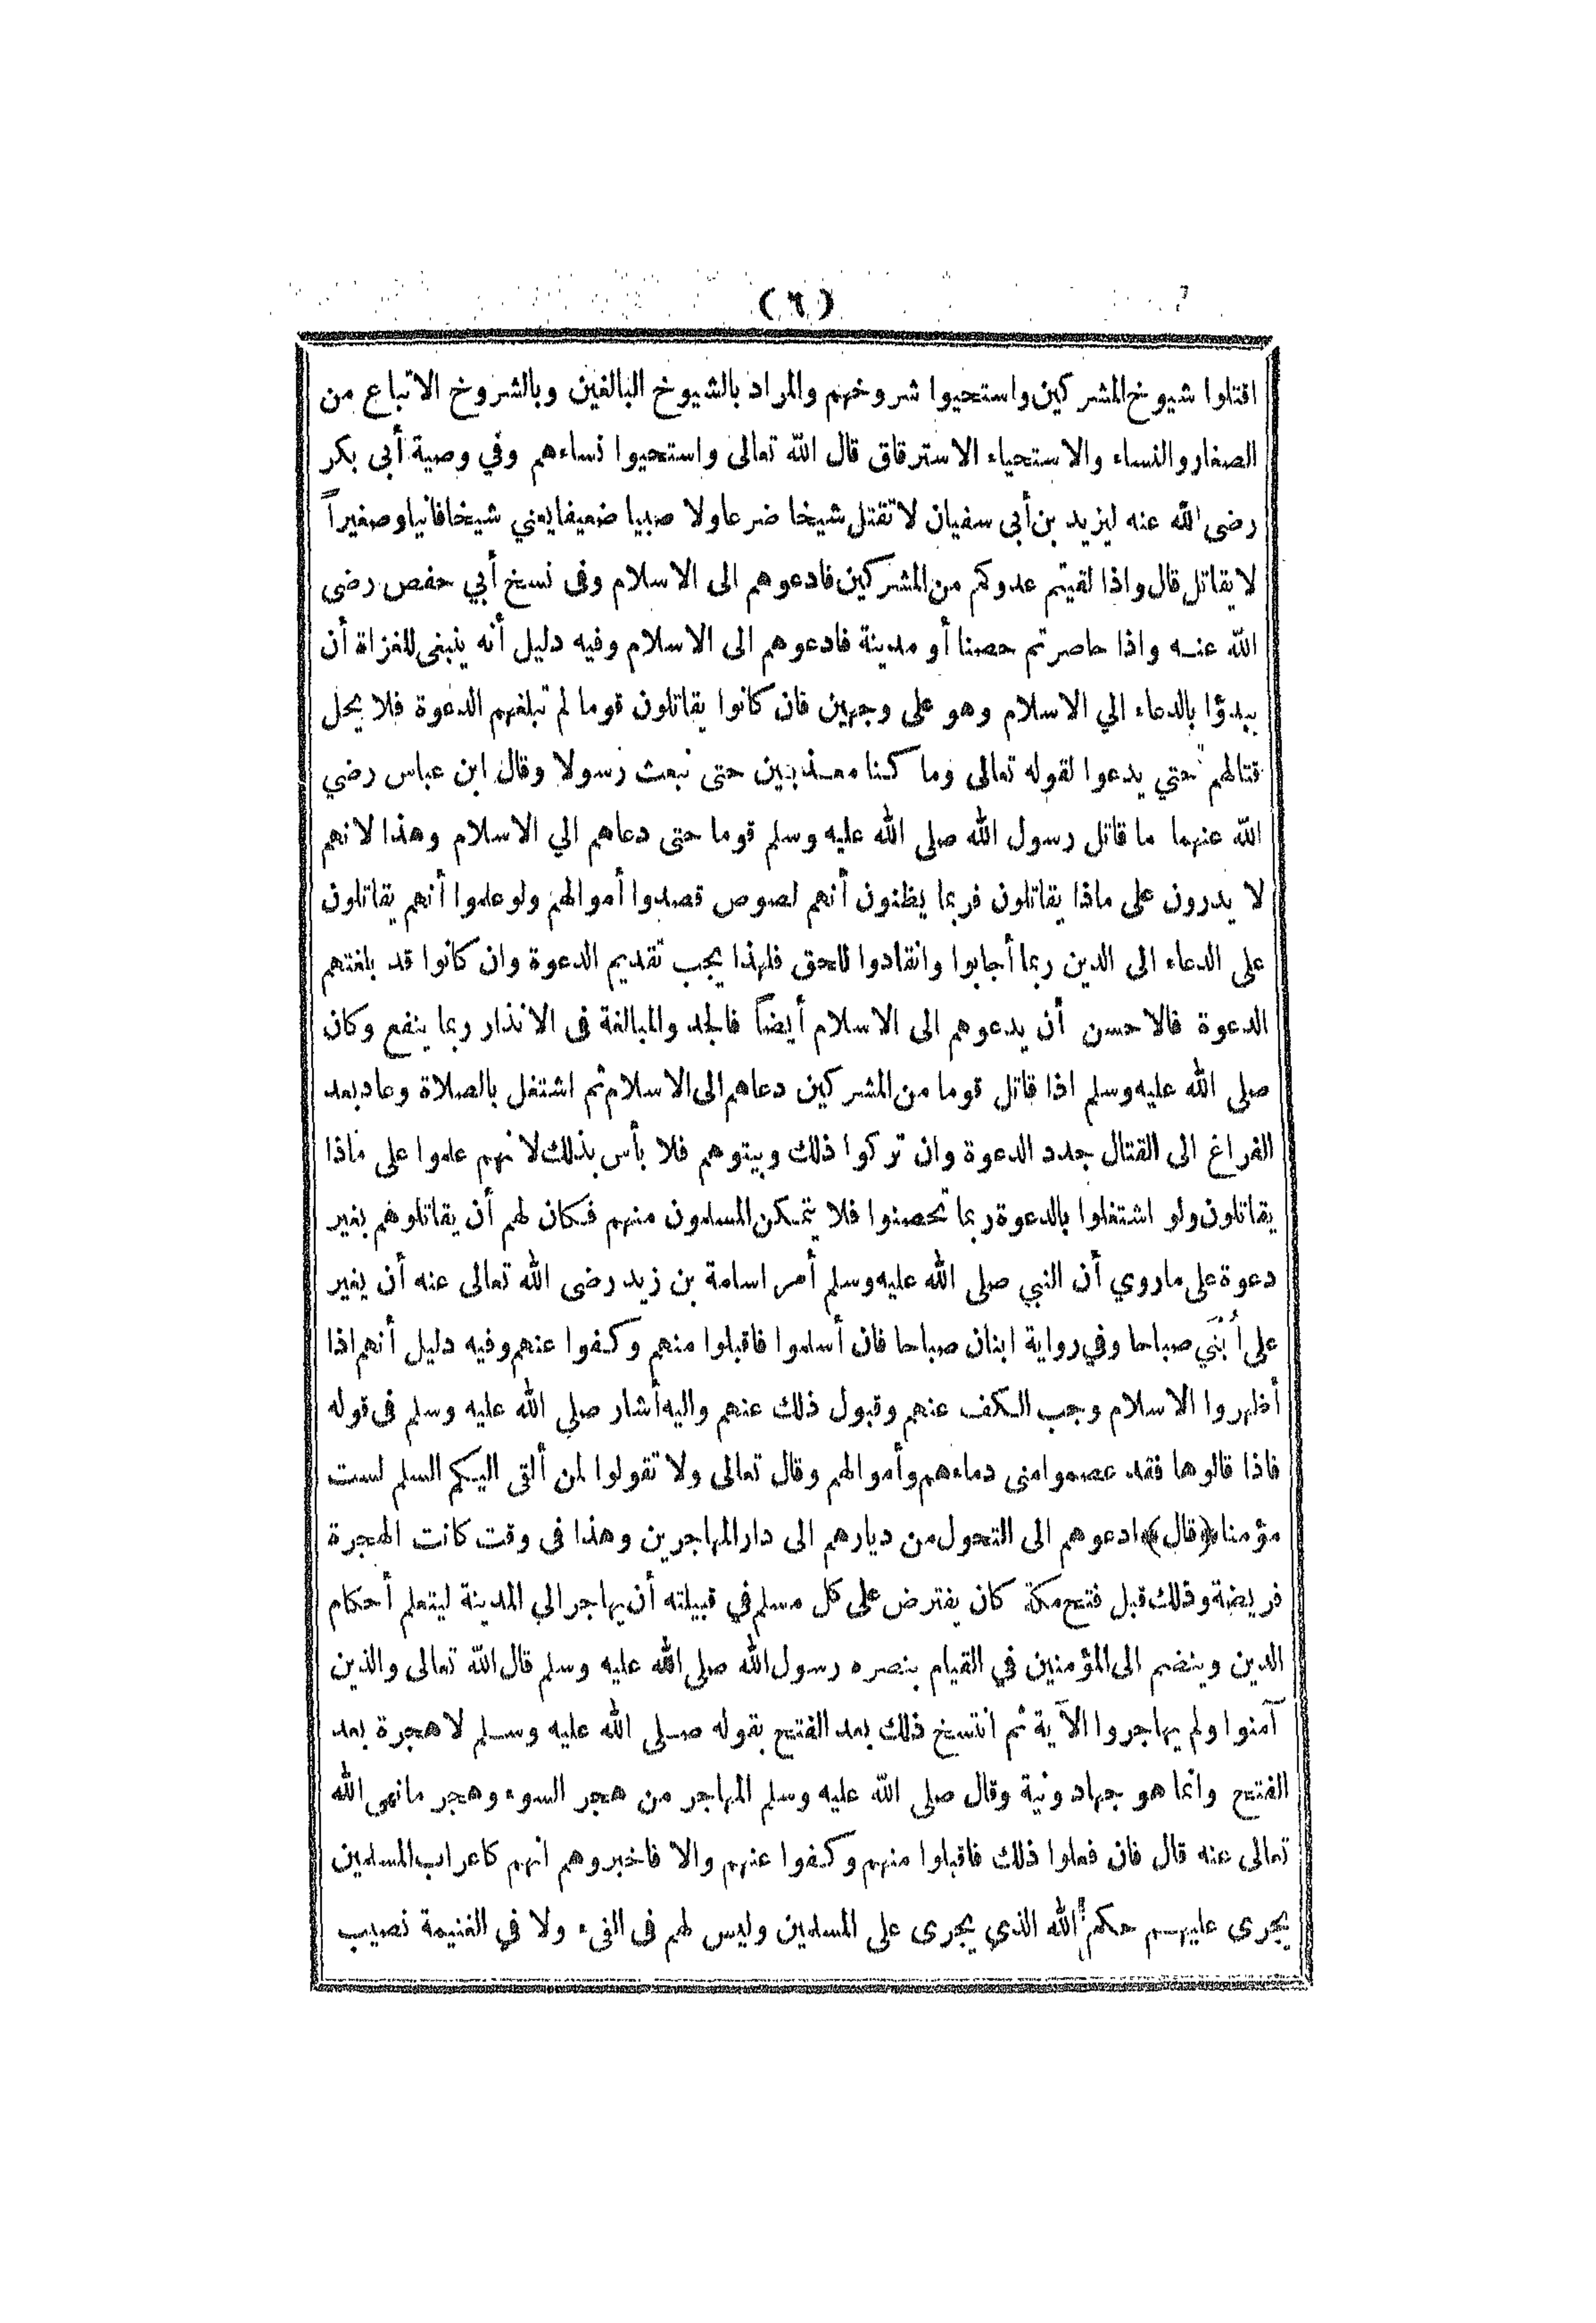 (٦)
اقتلوا شيوخ المشركين واستحيوا شروخهم والمراد بالشيوخ البالغين وبالشروخ الاتباع من
الصغار والنساء والاستحياء الاسترقاق قال الله تعالى واستحيوا نساءهم وفي وصية أبى بكر
رضى الله عنه ليزيد بن أبى سفيان لا تقتل شيخا ضرعا ولا صبيا ضعيفا يعني شيخا فانيا وصغيراً
لا يقاتل قال واذا لقيتم عدوكم من المشركين فادعوهم الى الاسلام وفى نسخ أبي حفص رضى
الله عنه واذا حاصرتم حصنا أو مدينة فادعوهم الى الاسلام وفيه دليل أنه ينبغى للغزاة أن
يبدؤا بالدعاء الي الاسلام وهو على وجهين فان كانوا يقاتلون قوما لم تبلغهم الدعوة فلا يحل
قتالهم حتي يدعوا لقوله تعالى وما كنا معذبين حتى نبعث رسولا وقال ابن عباس رضي
الله عنهما ما قاتل رسول الله صلى الله عليه وسلم قوما حتى دعاهم الي الاسلام وهذا لانهم
لا يدرون على ماذا يقاتلون فربما يظنون أنهم لصوص قصدوا أموالهم ولو علموا أنهم يقاتلون
على الدعاء الى الدين ربما أجابوا وانقادوا للحق فلهذا يجب تقديم الدعوة وان كانوا قد بلغتهم
الدعوة فالاحسن أن يدعوهم الى الاسلام أيضاً فالجد والمبالغة فى الانذار ربما ينفع وكان
صلى الله عليه وسلم اذا قاتل قوما من المشركين دعاهم الى الاسلام ثم اشتغل بالصلاة وعاد بعد
الفراغ الى القتال جدد الدعوة وان تركوا ذلك وبيتوهم فلا بأس بذلك لانهم علموا على ماذا
يقاتلون ولو اشتغلوا بالدعوة ربما تحصنوا فلا يتمكن المسلمون منهم فكان لهم أن يقاتلوهم بغير
دعوة على ما روي أن النبي صلى الله عليه وسلم أمر اسامة بن زيد رضى الله تعالى عنه أن يغير
على أُبْنَي صباحا وفي رواية ابنان صباحا فان أسلموا فاقبلوا منهم وكفوا عنهم وفيه دليل أنهم اذا
أظهروا الاسلام وجب الكف عنهم وقبول ذلك عنهم واليه أشار صلي الله عليه وسلم فى قوله
فاذا قالوها فقد عصموا منى دماءهم وأموالهم وقال تعالى ولا تقولوا لمن ألقى اليكم السلم لست
مؤمنا ﴿قال﴾ ادعوهم الى التحول من ديارهم الى دار المهاجرين وهذا فى وقت كانت الهجرة
فريضة وذلك قبل فتح مكة كان يفترض على كل مسلم في قبيلته أن يهاجر الي المدينة ليتعلم أحكام
الدين وينضم الى المؤمنين في القيام بنصره رسول الله صلى الله عليه وسلم قال الله تعالى والذين
آمنوا ولم يهاجروا الآية ثم انتسخ ذلك بعد الفتح بقوله صلى الله عليه وسلم لا هجرة بعد
الفتح وانما هو جهاد ونية وقال صلى الله عليه وسلم المهاجر من هجر السوء وهجر ما نهى الله
تعالى عنه قال فان فعلوا ذلك فاقبلوا منهم وكفوا عنهم والا فاخبروهم انهم كاعراب المسلمين
يجرى عليهم حكم الله الذي يجرى على المسلمين وليس لهم فى الفىء ولا في الغنيمة نصيب